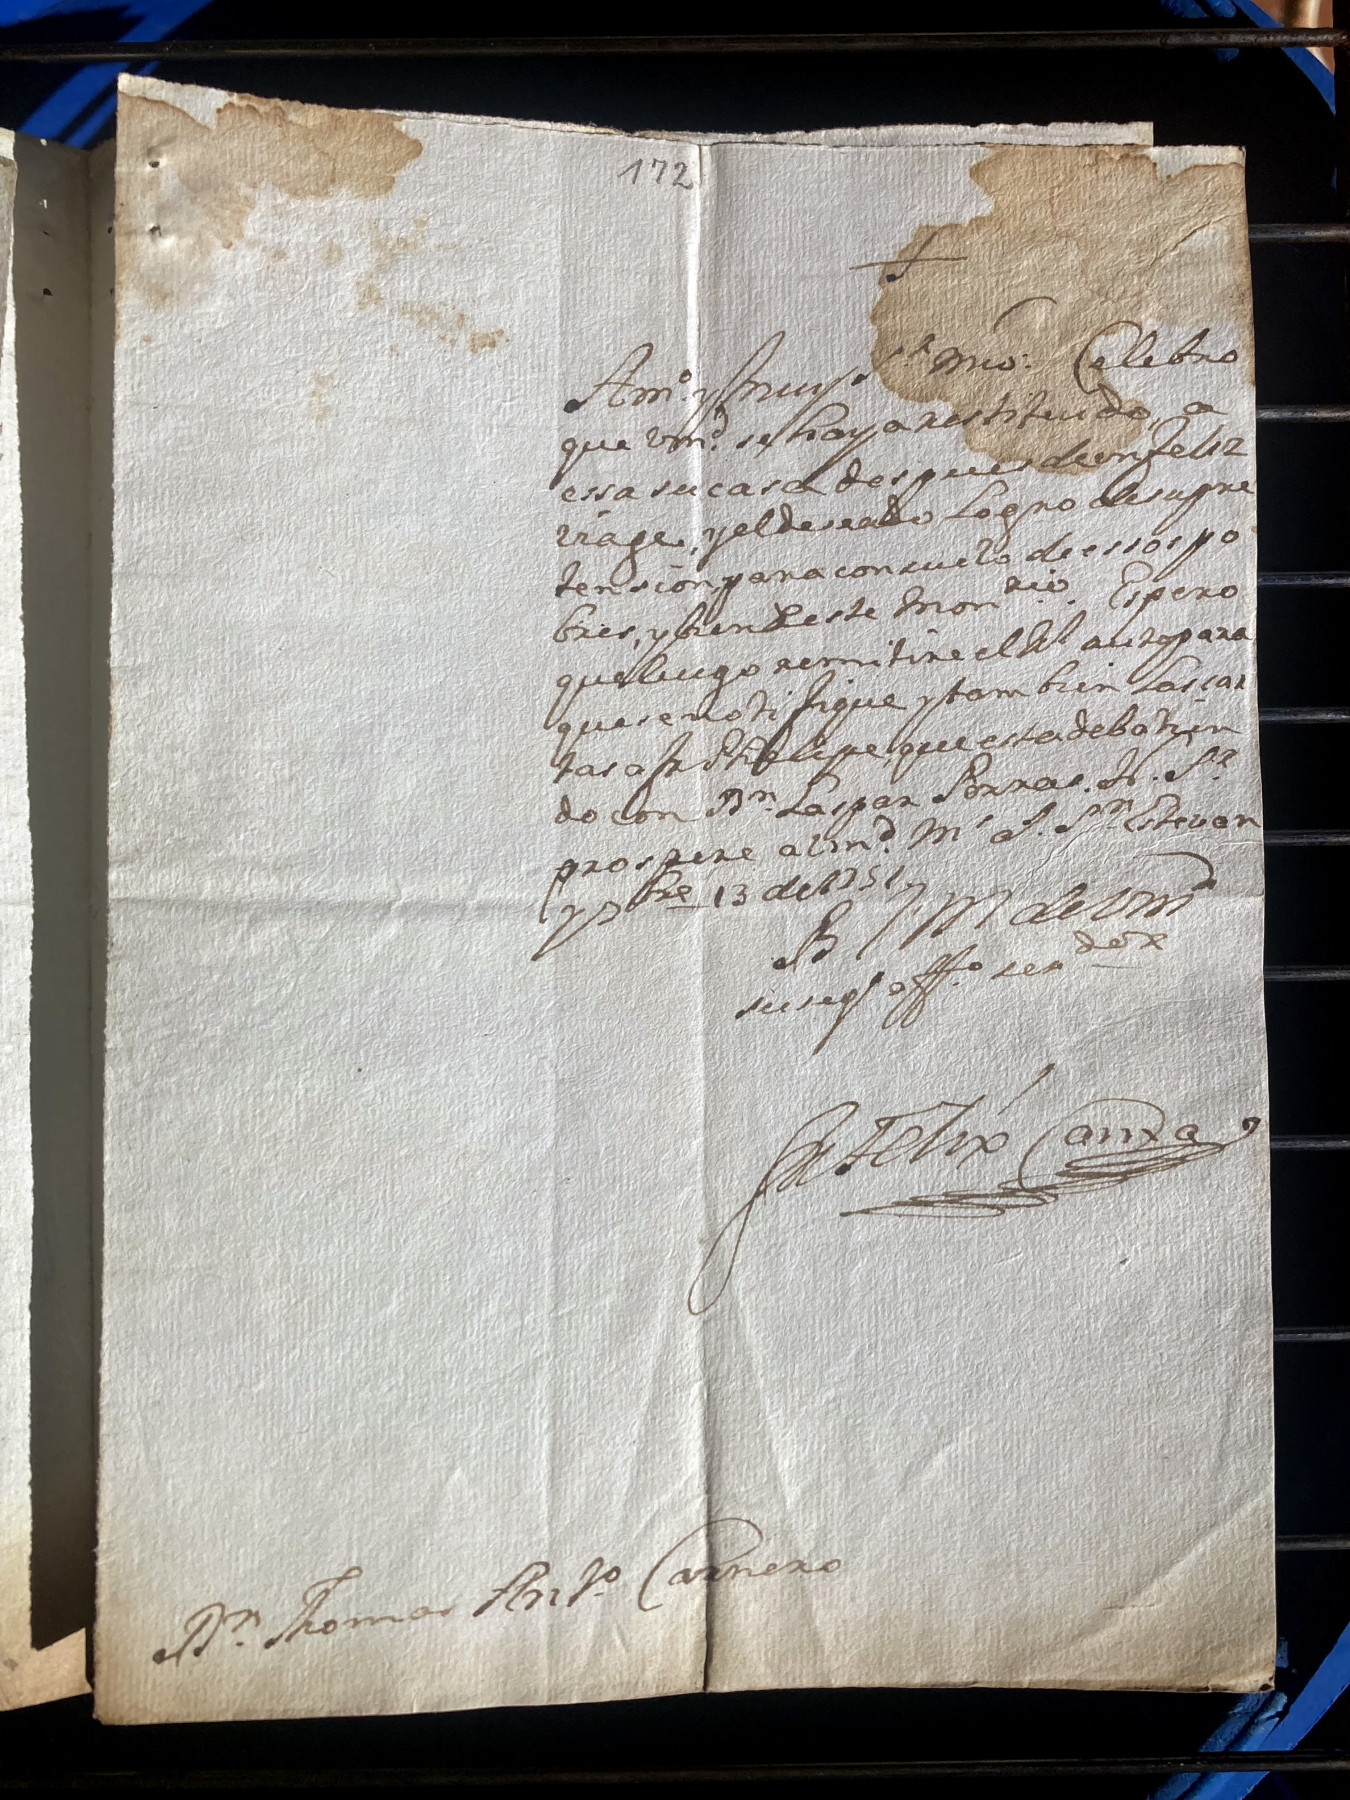 172
+
Am.º y muy S.r mio: Celebro
que Vmd. se haya restituido, a
essa su casa despues de un feliz
viage, y el deseado logro de su pre
tension para consuelo de essos po
bres, y bien de este Mon.rio. Espero
que luego remitire el Rl auto para
que se notifique y tambien las car
tas a fr Phelipe, que esta debatien
do con Dn. Gaspar Porras. N. S.r
prospere a Vmd. M.s a.s S.n Estevan
y 7bre 13 de 1751
B L M de Vmd
su seg.º aff.º serdor
Fr Felix Canza
Dn. Thomas Ant.º Carnero